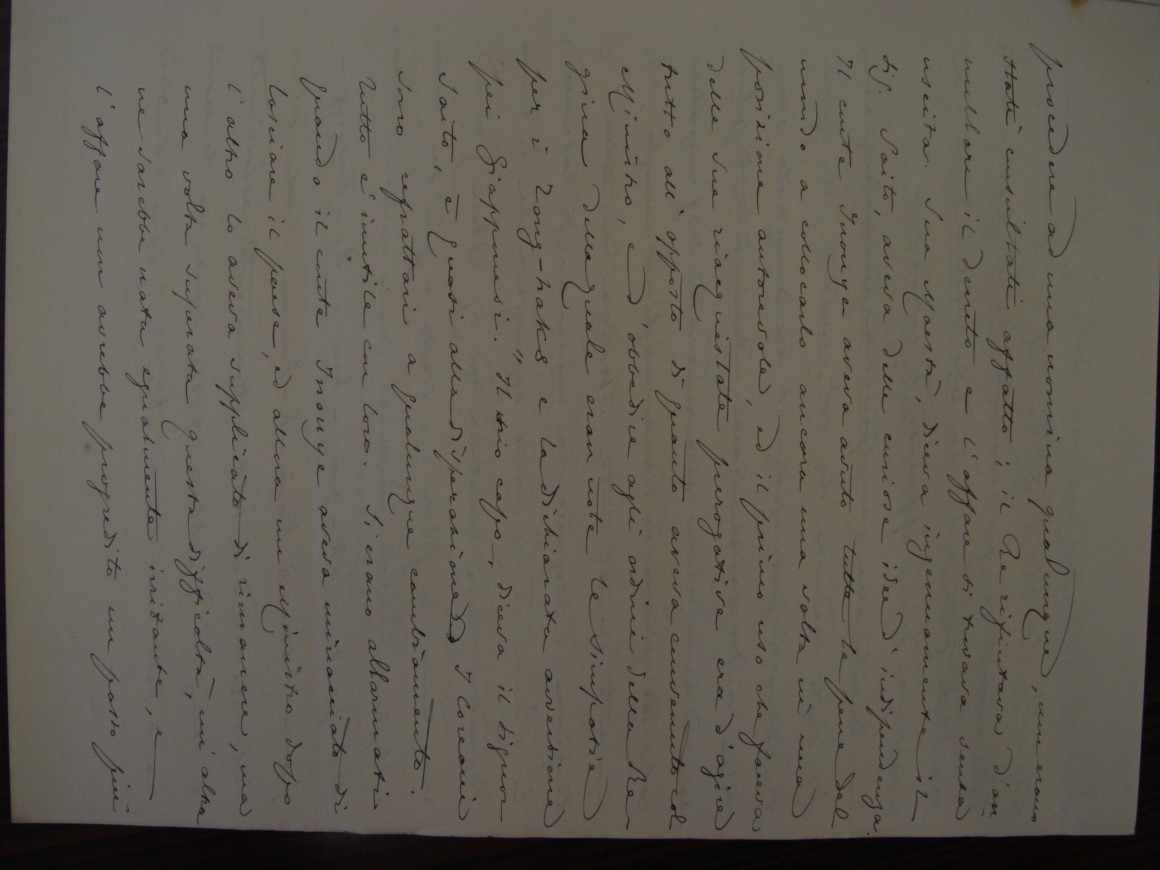 procedere ad una nomina qualunque, immerono
State insultati affatto; il Re rifiutava d'an
nullare il decreto e l'affare si trovava senza
uscita. Sua Maestà, diceva ingenuamente il
Sig. Saito, aveva delle curiose idee d'indipendenza.
Il conte Inouye aveva avuto tutte le pene del
mondo a collocarlo ancora una volta in una
posizione autorevole, ed il primo uso che faceva
delle sue riacquistate prerogative era d'agire
tutto all'opposto di quanto aveva convenuto col
Ministro, e d'obbedire agli ordini della Re-
gina della quale eran note le simpatie
per i Tong-haks e la dichiarata avversione
pei Giapponesi. "Il mio capo, diceva il Signor
Saito, è quasi alla disperazione. I Coreani
sono refrattari a qualunque cambiamento.
Tutto è inutile con loro. Si erano allarmati
quando il conte Inouye aveva minacciato di
lasciare il paese, ed allora un Ministro dopo
l'altro lo aveva supplicato di rimanere, ma
una volta superata questa difficoltà, un'altra
ne sarebbe nata egualmente irritante, e
l'affare non avrebbe progredito un passo più